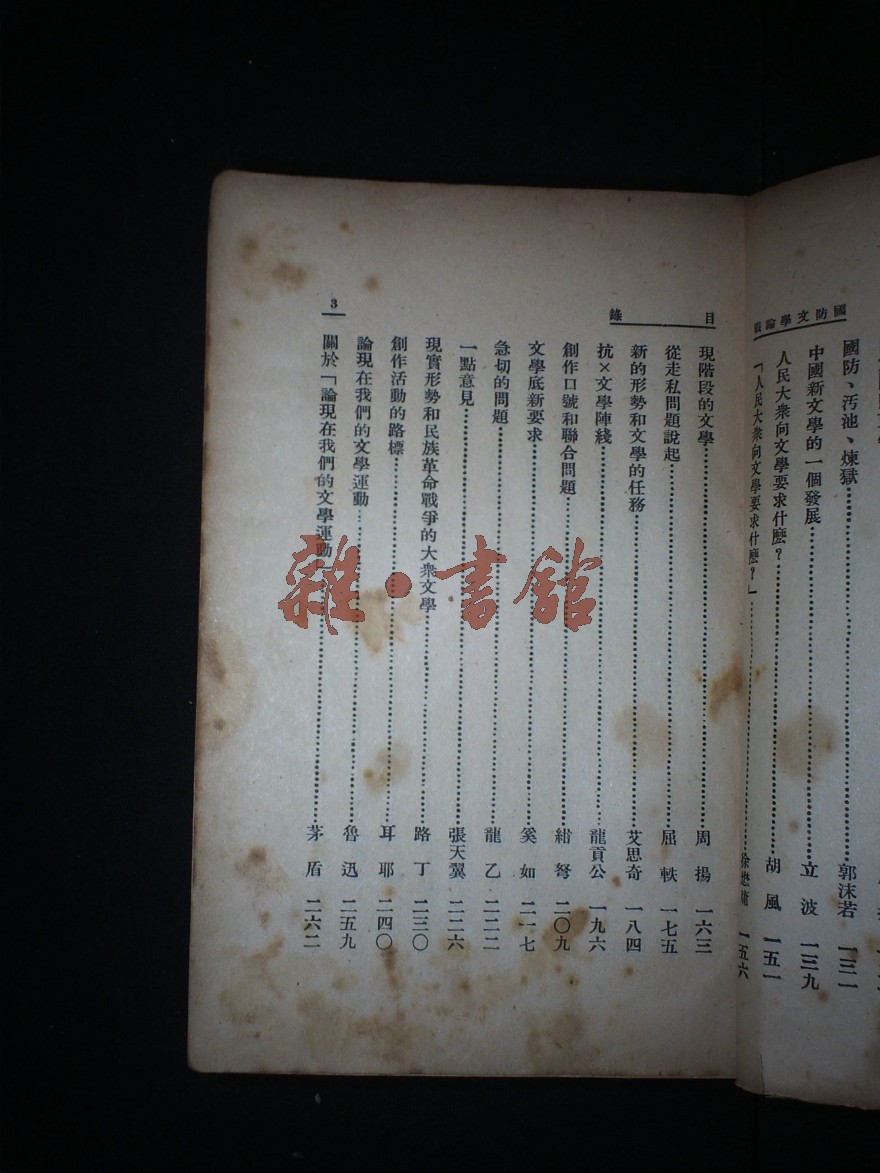 國防文學論戰
國防、汚池、煉獄……郭沫若 一三一
中國新文學的一個發展……立波 一三九
人民大衆向文學要求什麽？……胡風 一五一
「人民大衆向文學要求什麽？」……徐懋庸 一五六
目錄
現階段的文學……周揚 一六三
從走私問題說起……屈軼 一七五
新的形勢和文學的任務……艾思奇 一八四
抗×文學陣綫……龍貢公 一九六
創作口號和聯合問題……紺弩 二〇九
文學底新要求……奚如 二一七
急切的問題……龍乙 二二二
一點意見……張天翼 二二六
現實形勢和民族革命戰爭的大衆文學……路丁 二三〇
創作活動的路標……耳耶 二四〇
論現在我們的文學運動……魯迅 二五九
關於「論現在我們的文學運動」……茅盾 二六二
3
雜·書館